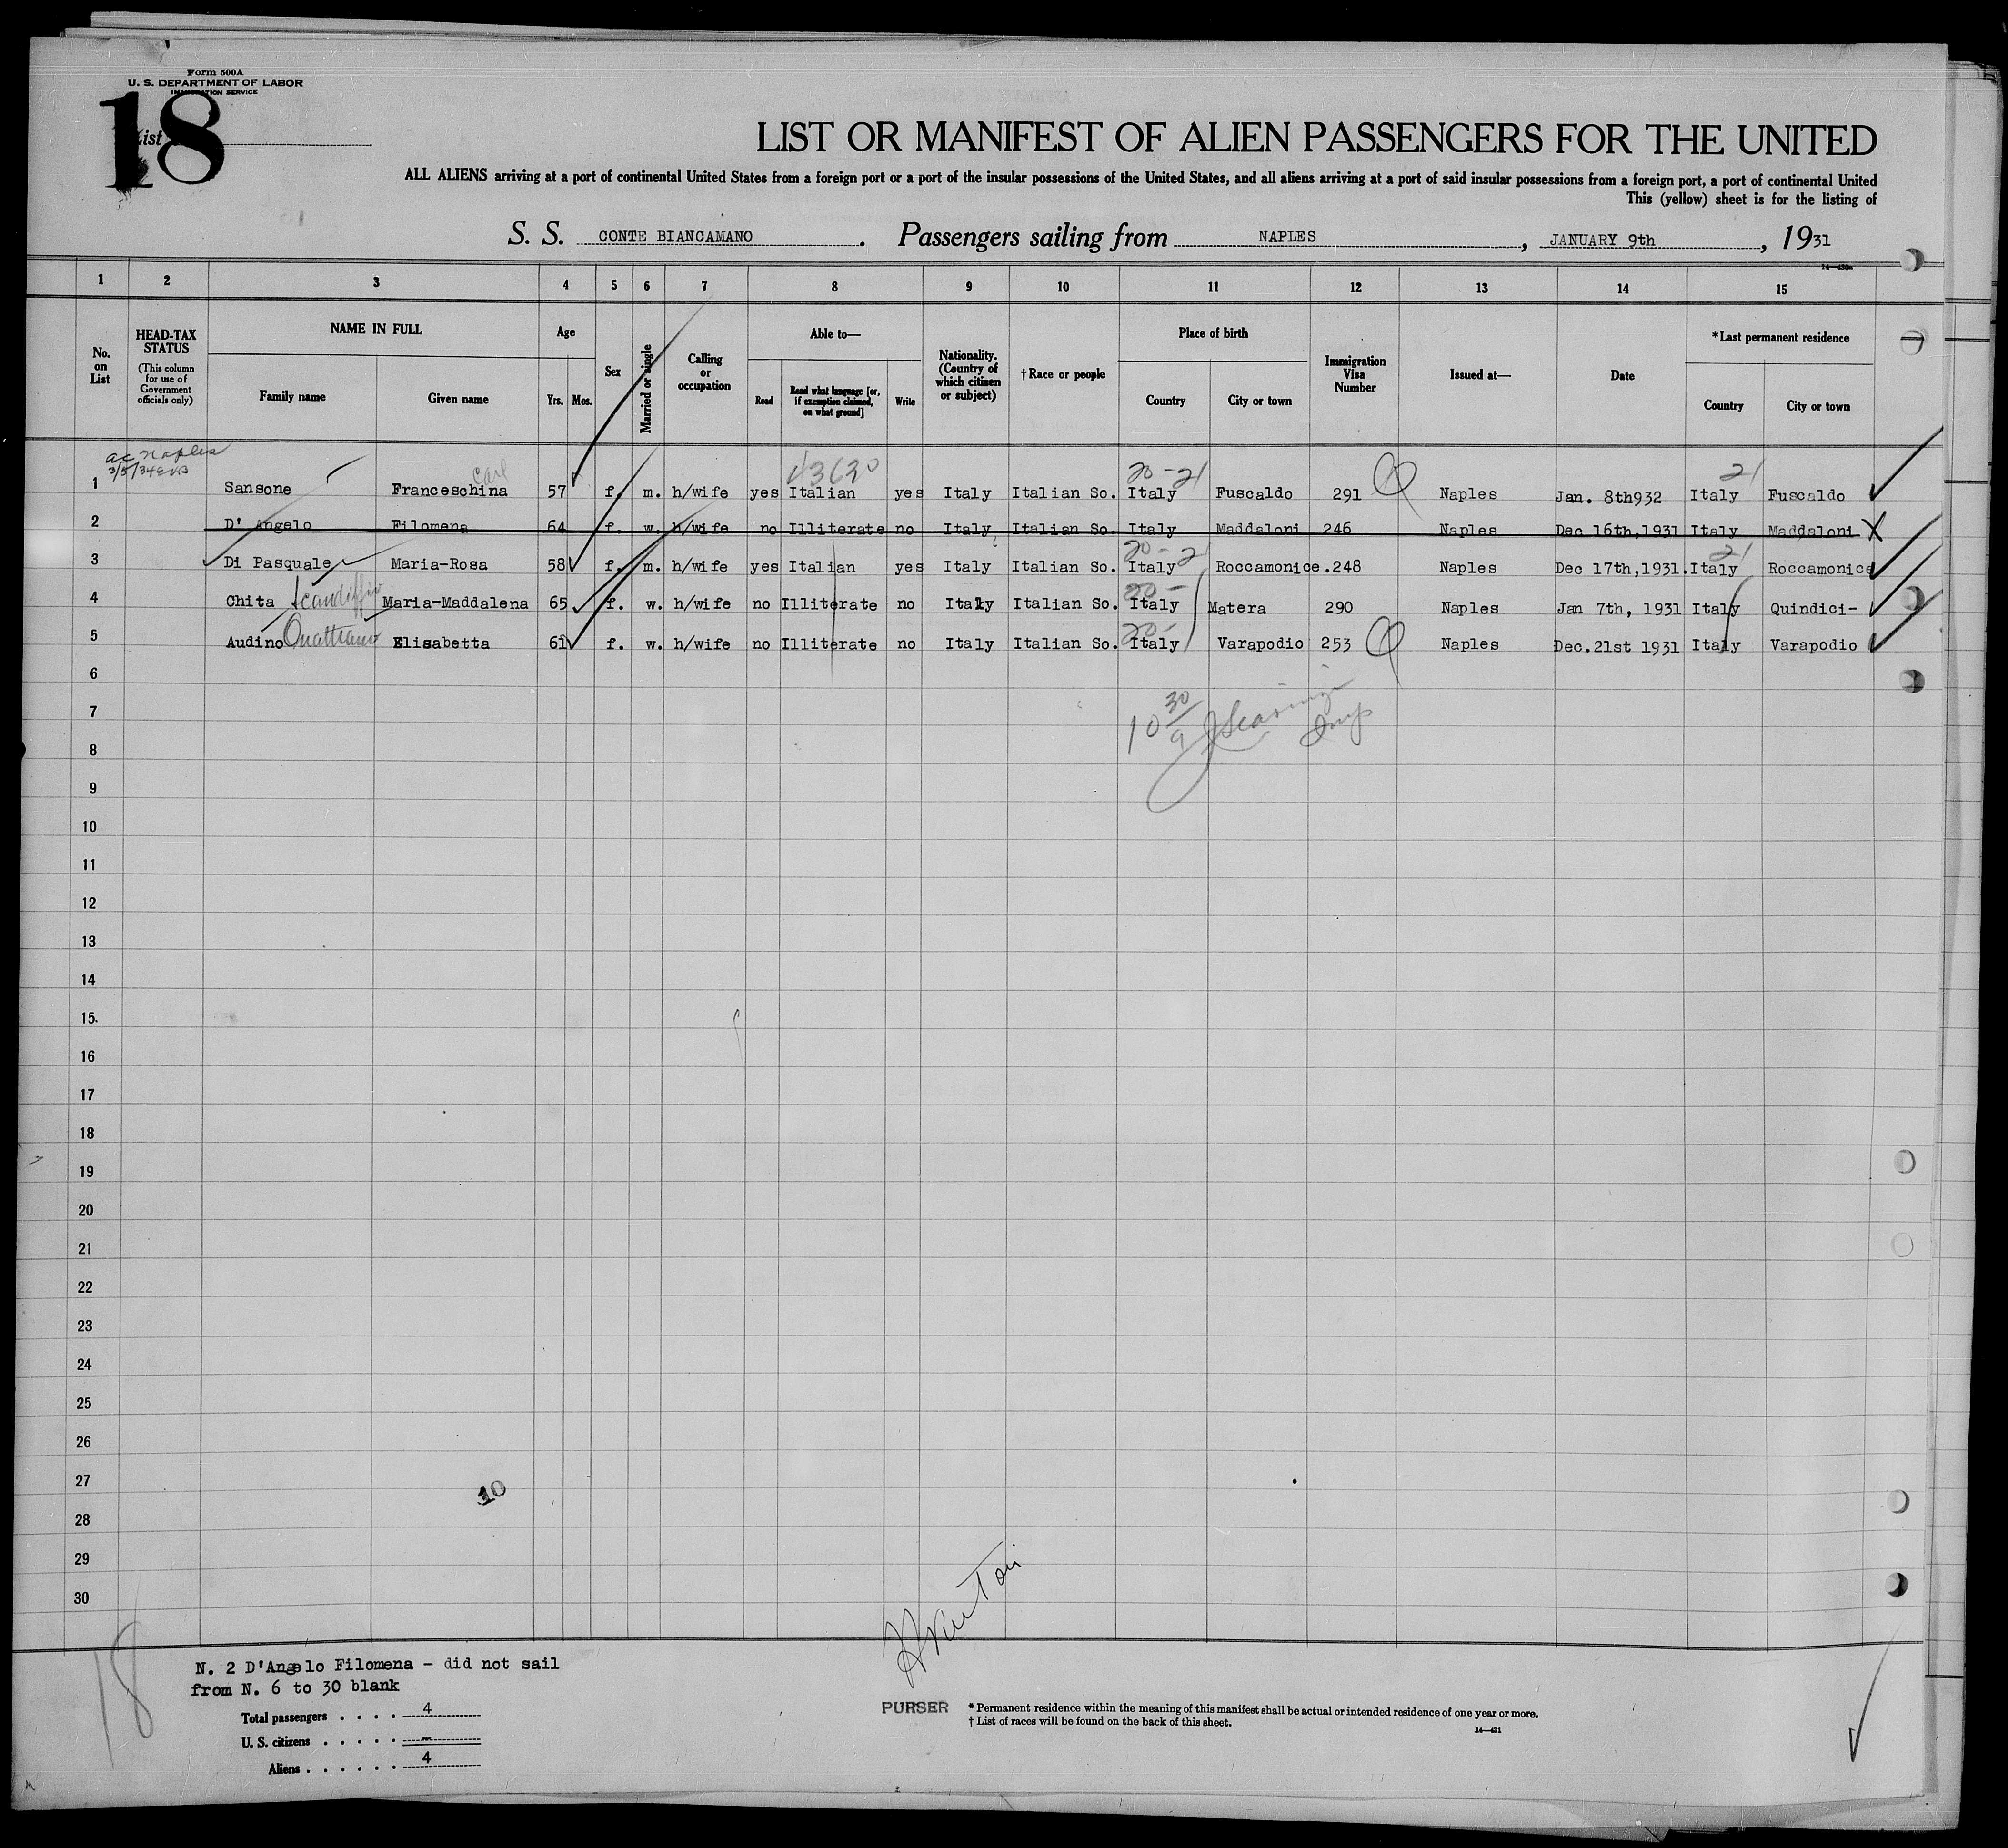 Form 500A
U. S. DEPARTMENT OF LABOR
IMMIGRATION SERVICE
List 18
LIST OR MANIFEST OF ALIEN PASSENGERS FOR THE UNITED
ALL ALIENS arriving at a port of continental United States from a foreign port or a port of the insular possessions of the United States, and all aliens arriving at a port of said insular possessions from a foreign port, a port of continental United
This (yellow) sheet is for the listing of
S. S. CONTE BIANCAMANO . Passengers sailing from NAPLES , JANUARY 9th , 1931
1 2 3 4 5 6 7 8 9 10 11 12 13 14 15
No. on List
HEAD-TAX STATUS
(This column for use of Government officials only)
NAME IN FULL
Family name Given name
Age
Yrs. Mos.
Sex
Married or single
Calling or occupation
Able to—
Read Read what language [or, if exemption claimed, on what ground] Write
Nationality. (Country of which citizen or subject)
†Race or people
Place of birth
Country City or town
Immigration Visa Number
Issued at—
Date
*Last permanent residence
Country City or town
ac Naples
Carl 43630 20-21 21
1 Sansone Franceschina 57 f. m. h/wife yes Italian yes Italy Italian So. Italy Fuscaldo 291 Naples Jan. 8th932 Italy Fuscaldo
2 D' Angelo Filomena 64 f. w. h/wife no Illiterate no Italy Italian So. Italy Maddaloni 246 Naples Dec 16th,1931 Italy Maddaloni X
20-21 21
3 Di Pasquale Maria-Rosa 58 f. m. h/wife yes Italian yes Italy Italian So. Italy Roccamonice.248 Naples Dec 17th,1931.Italy Roccamonice
20-
4 Chita Scandiffio Maria-Maddalena 65 f. w. h/wife no Illiterate no Italy Italian So. Italy Matera 290 Naples Jan 7th, 1931 Italy Quindici-
20-
5 Audino Quattrano Elisabetta 61 f. w. h/wife no Illiterate no Italy Italian So. Italy Varapodio 253 Naples Dec.21st 1931 Italy Varapodio
6
7
8
9
10
11
12
13
14
15.
16
17
18
19
20
21
22
23
24
25
26
27
10
28
29
30
18
N. 2 D'Angelo Filomena - did not sail
from N. 6 to 30 blank
Total passengers . . . . 4
U. S. citizens . . . . . -
Aliens . . . . . . 4
PURSER
* Permanent residence within the meaning of this manifest shall be actual or intended residence of one year or more.
† List of races will be found on the back of this sheet.
14—421